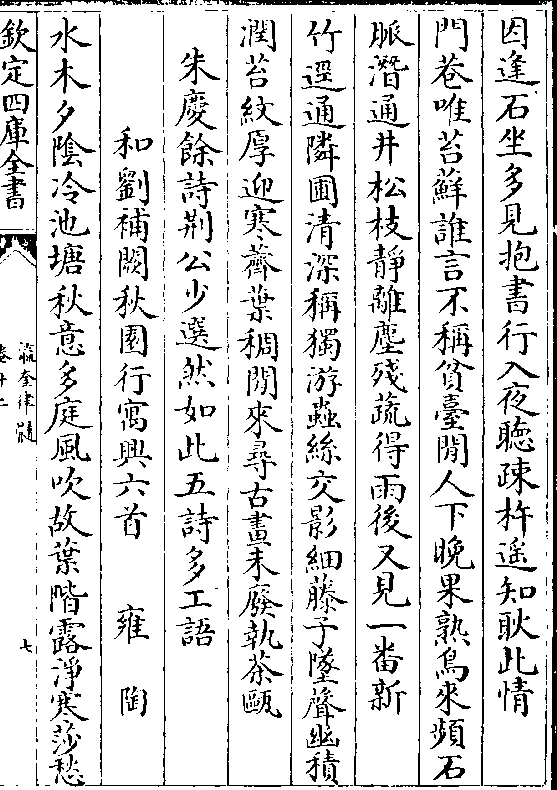 因逢石坐多見抱書行入夜聴疎杵遥知耿此情
門巷唯苔蘚誰言不稱貧臺閒人下晚果熟鳥來頻石
脈潛通井松枝靜離塵殘蔬得雨後又見一番新
竹逕通隣圃清深稱獨游蟲絲交影細藤子墜聲幽積
潤苔紋厚迎寒薺葉稠閒來尋古畫未廢執茶甌
朱慶餘詩荆公少選然如此五詩多工語
和劉補闕秋園行寓興六首 雍陶
水木夕陰冷池塘秋意多庭風吹故葉階露淨寒莎愁
欽定四庫全書
瀛奎律髓
卷十二
七